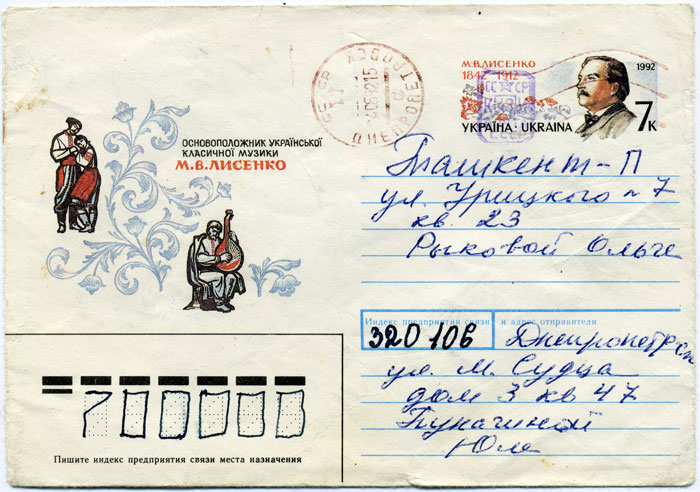 М.В.ЛИСЕНКО
1842 1912
1992
7к
УКРАЇНА · UKRAINA
ОСНОВОПОЛОЖНИК УКРАЇНСЬКОЇ
КЛАСИЧНОЇ МУЗИКИ
М.В.ЛИСЕНКО
ДНЕПРОПЕТРОВСК
Ташкент-П
ул. Урицкого 7
кв. 23
Рыковой Ольге
Индекс предприятия связи и адрес отправителя
320106 Днепропетровск
ул. М. Судца
дом 3 кв 47
Юле
700000
Пишите индекс предприятия связи места назначения